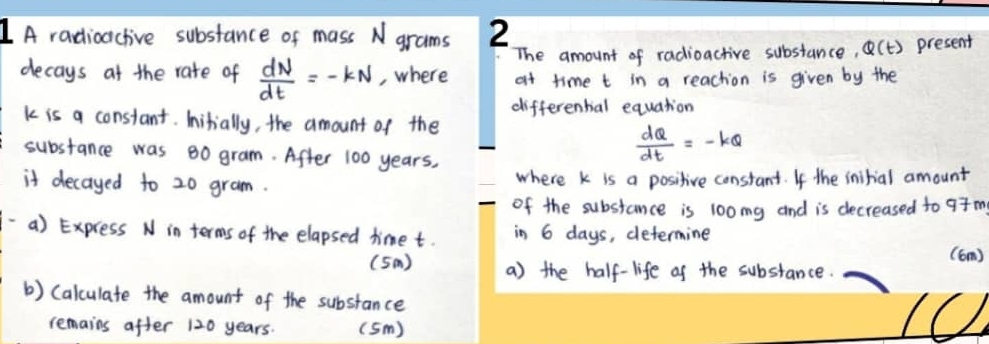 1 A radioactive substance of mass N grams
decays at the rate of dN/dt = -kN, where
k is a constant. Initially, the amount of the
substance was 80 gram. After 100 years,
it decayed to 20 gram.
a) Express N in terms of the elapsed time t.
(5m)
b) Calculate the amount of the substance
remains after 120 years. (5m)
2
The amount of radioactive substance, Q(t) present
at time t in a reaction is given by the
differential equation
dQ/dt = -kQ
where k is a positive constant. If the initial amount
of the substance is 100 mg and is decreased to 97 mg
in 6 days, determine
(6m)
a) the half-life of the substance.